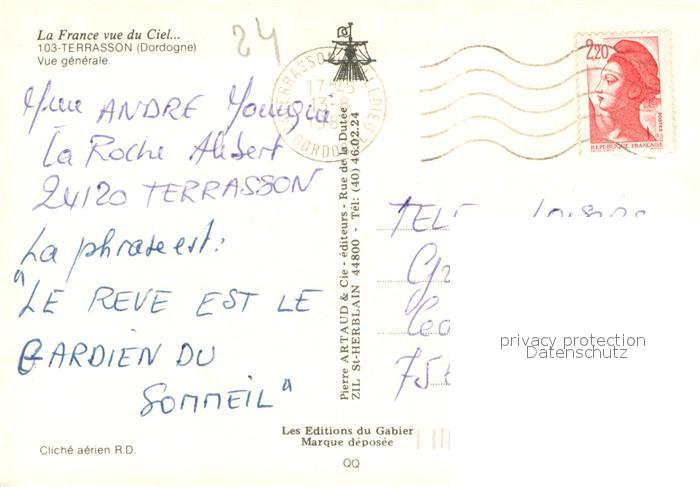 La France vue du Ciel...
103-TERRASSON (Dordogne)
Vue générale.
24
17 45
DORDOGNE
2,20
POSTES
REPUBLIQUE FRANÇAISE
Mme ANDRE
La Roche Alibert
24120 TERRASSON
La phrase est:
"LE REVE EST LE
GARDIEN DU
SOMMEIL"
Pierre ARTAUD & Cie - éditeurs - Rue de la Dutée
ZIL St-HERBLAIN 44800 - Tél: (40) 46.02.24
TELE
75
privacy protection
Datenschutz
Les Editions du Gabier
Marque déposée
QQ
Cliché aérien R.D.